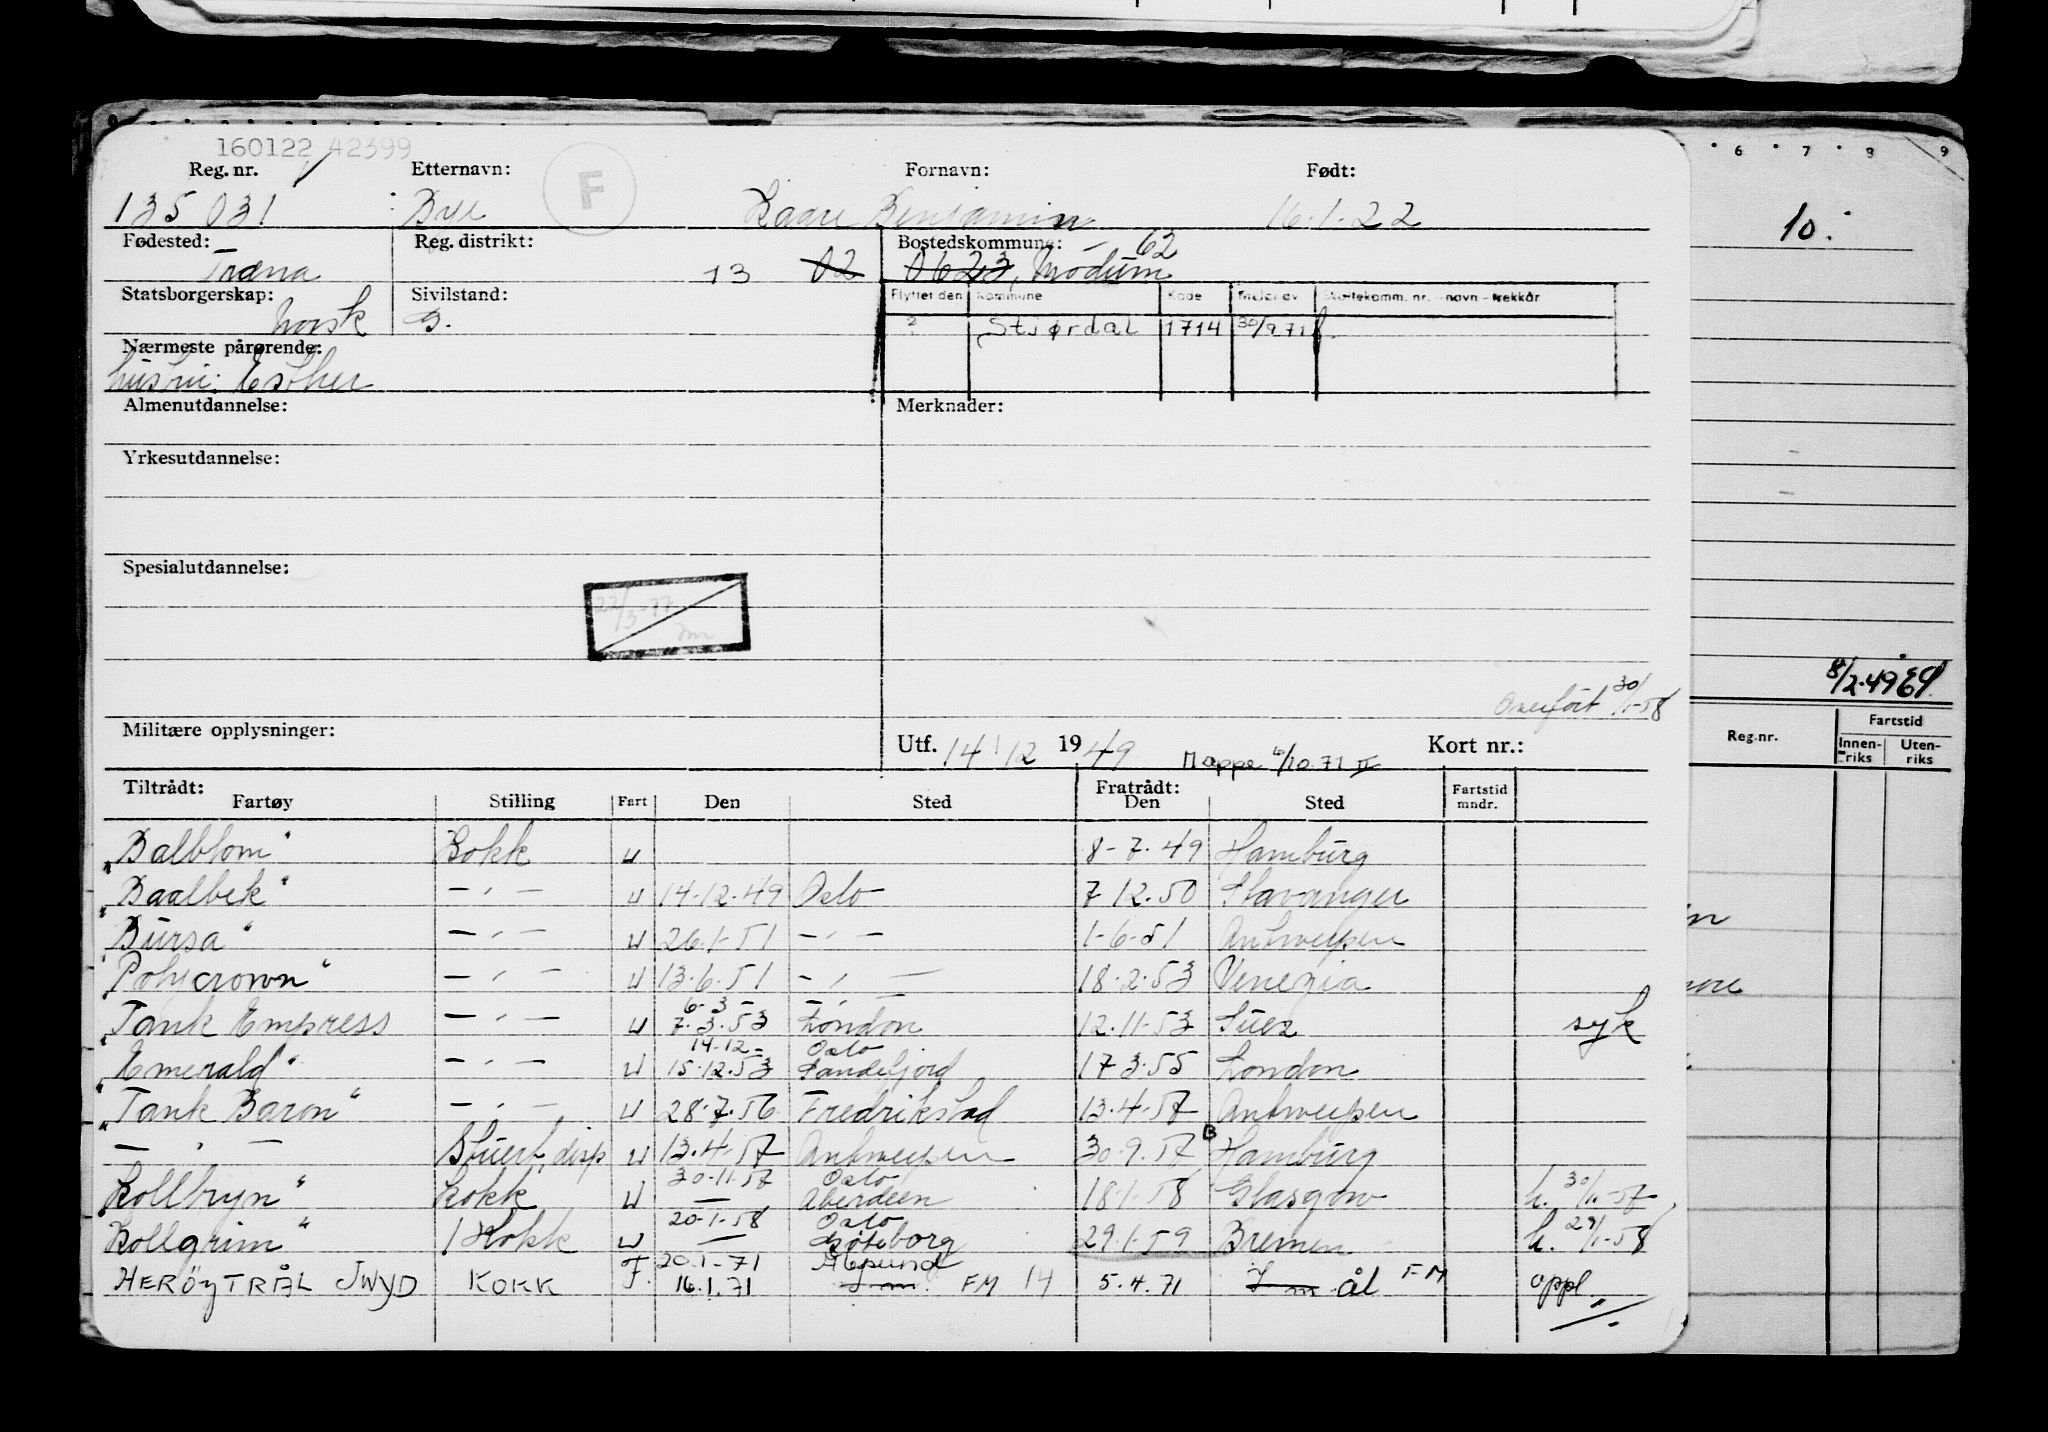 160122 42399
Reg. nr. Etternavn: F Fornavn: Født:
135 031 Bye Kaare Benjamin 16.1.22
Fødested: Reg. distrikt: Bostedskommune: 62
Træna 13 02 0623, Modum
Statsborgerskap: Sivilstand: Flyttet den Kommune Kode Meld. av Skattekomm. nr. - navn - trekkår
Norsk G. ? Stjørdal 1714 30/9 71
Nærmeste pårørende:
hustru: Esther
Almenutdannelse: Merknader:
Yrkesutdannelse:
Spesialutdannelse:
22/3-77
Overført 30/1-58
Militære opplysninger: Utf. 14/12 1949 Mappe 6/10.71 Kort nr.:
Tiltrådt: Fratrådt:
Fartøy Stilling Fart Den Sted Den Sted Fartstid mndr.
"Balblom" Kokk u 8-7-49 Hamburg
"Baalbek" — " — u 14.12.49 Oslo 7.12.50 Stavanger
"Bursa" — " — u 26.1-51 — " — 1-6-51 Antwerpen
"Polycrown" — " — u 13.6.51 — " — 18.2.53 Venezia
6-3- — " —
"Tank Empress — " — u 7.3.53 London 12.11.53 Suez syk
14-12- Oslo
"Emerald" — " — u 15.12.53 Sandefjord 17.3.55 London
"Tank Baron" — " — u 28.7.56 Fredrikstad 13.4.57 Antwerpen
— " — Stuert, disp u 13.4.57 Antwerpen 30.9.57 B Hamburg
30.11.57 Oslo
Kollbryn" Kokk u — Aberdeen 18.1.58 Glasgow h. 30/11-57
20.1.58 Oslo
Kollgrim" 1 Kokk u — Göteborg 29.1.59 Bremen h. 29/1-58
F 20.1-71 Ålesund
HERÖYTRÅL JWYD KOKK F. 16.1.71 FM 14 5.4.71 ål FM oppl.
6 7 8 9
10.
8/2.49
Reg.nr. Fartstid
Innen-riks Uten-riks